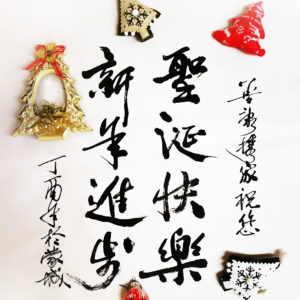 善新携家祝您
聖誕快樂
新年進步
丁酉年於蒙城